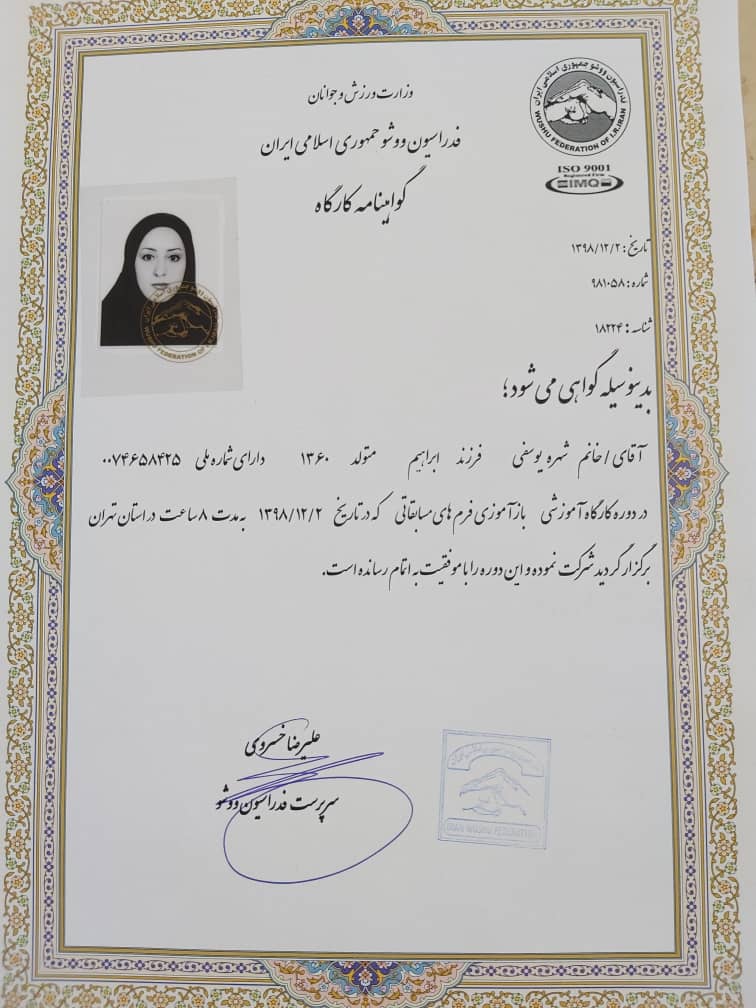 وزارت ورزش و جوانان
فدراسیون ووشو جمهوری اسلامی ایران
گواهینامه کارگاه
فدراسیون ووشو جمهوری اسلامی ایران
WUSHU FEDERATION OF I.R.IRAN
ISO 9001
Registered Firm
SIMQS
تاریخ: ۱۳۹۸/۱۲/۲
شماره: ۹۸۱۰۵۸
شناسه: ۱۸۲۲۴
بدینوسیله گواهی می شود؛
آقای / خانم شهره یوسفی فرزند ابراهیم متولد ۱۳۶۰ دارای شماره ملی ۰۰۷۴۶۵۸۴۲۵
در دوره کارگاه آموزشی بازآموزی فرم های مسابقاتی که در تاریخ ۱۳۹۸/۱۲/۲ به مدت ۸ ساعت در استان تهران
برگزار گردید شرکت نموده و این دوره را با موفقیت به اتمام رسانده است.
علیرضا خسروی
سرپرست فدراسیون ووشو
IRAN WUSHU FEDERATION